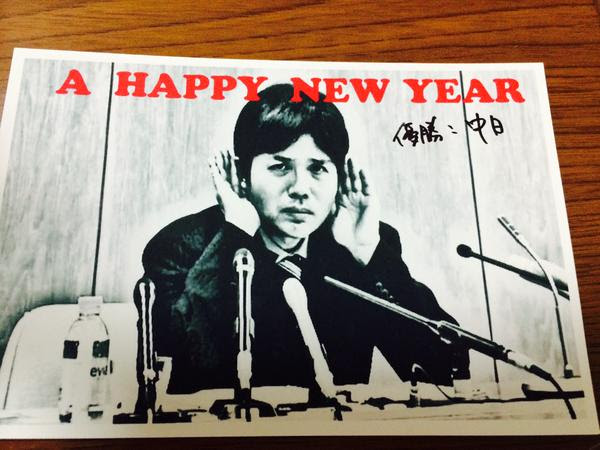 A HAPPY NEW YEAR
優勝：中日